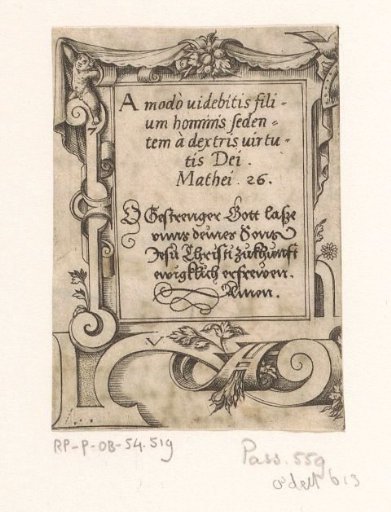 Amodò uidebitis fili-
um hominis seden-
tem à dextris uirtu-
tis Dei.
Mathei. 26.
O Gestrenger Gott lasze
vnns deines Sons
Jesu Christi zukhunfft
ewigklich erfrewen.
Amen.
V
RP-P-OB-54.519
Pass. 559